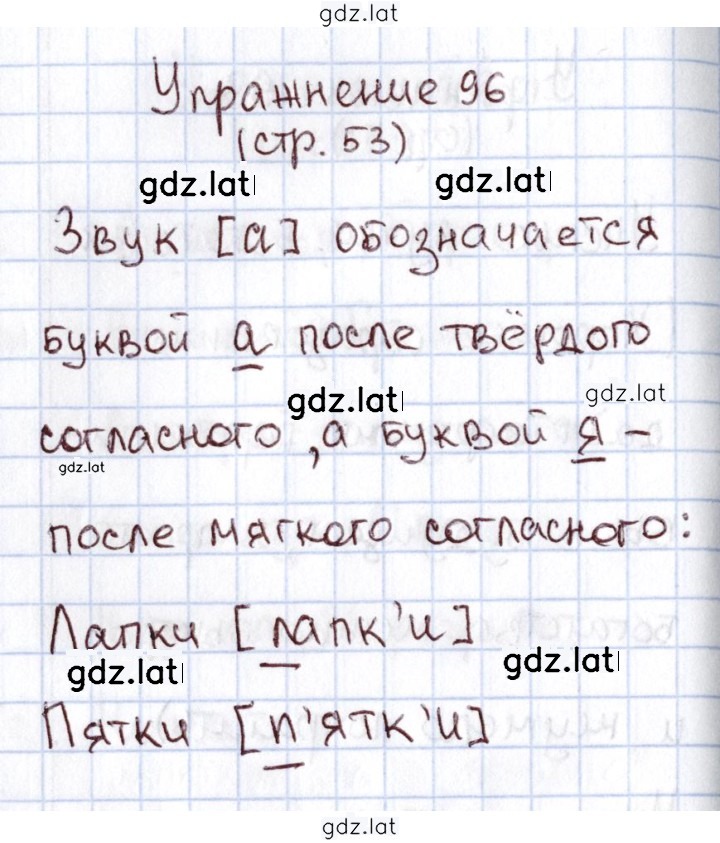 gdz.lat
Упражнение 96
(стр. 53)
gdz.lat gdz.lat
Звук [а] обозначается
буквой а после твёрдого
gdz.lat gdz.lat
согласного, а буквой я -
gdz.lat
после мягкого согласного:
Лапки [лапк'и]
gdz.lat gdz.lat
Пятки [п'ятк'и]
gdz.lat